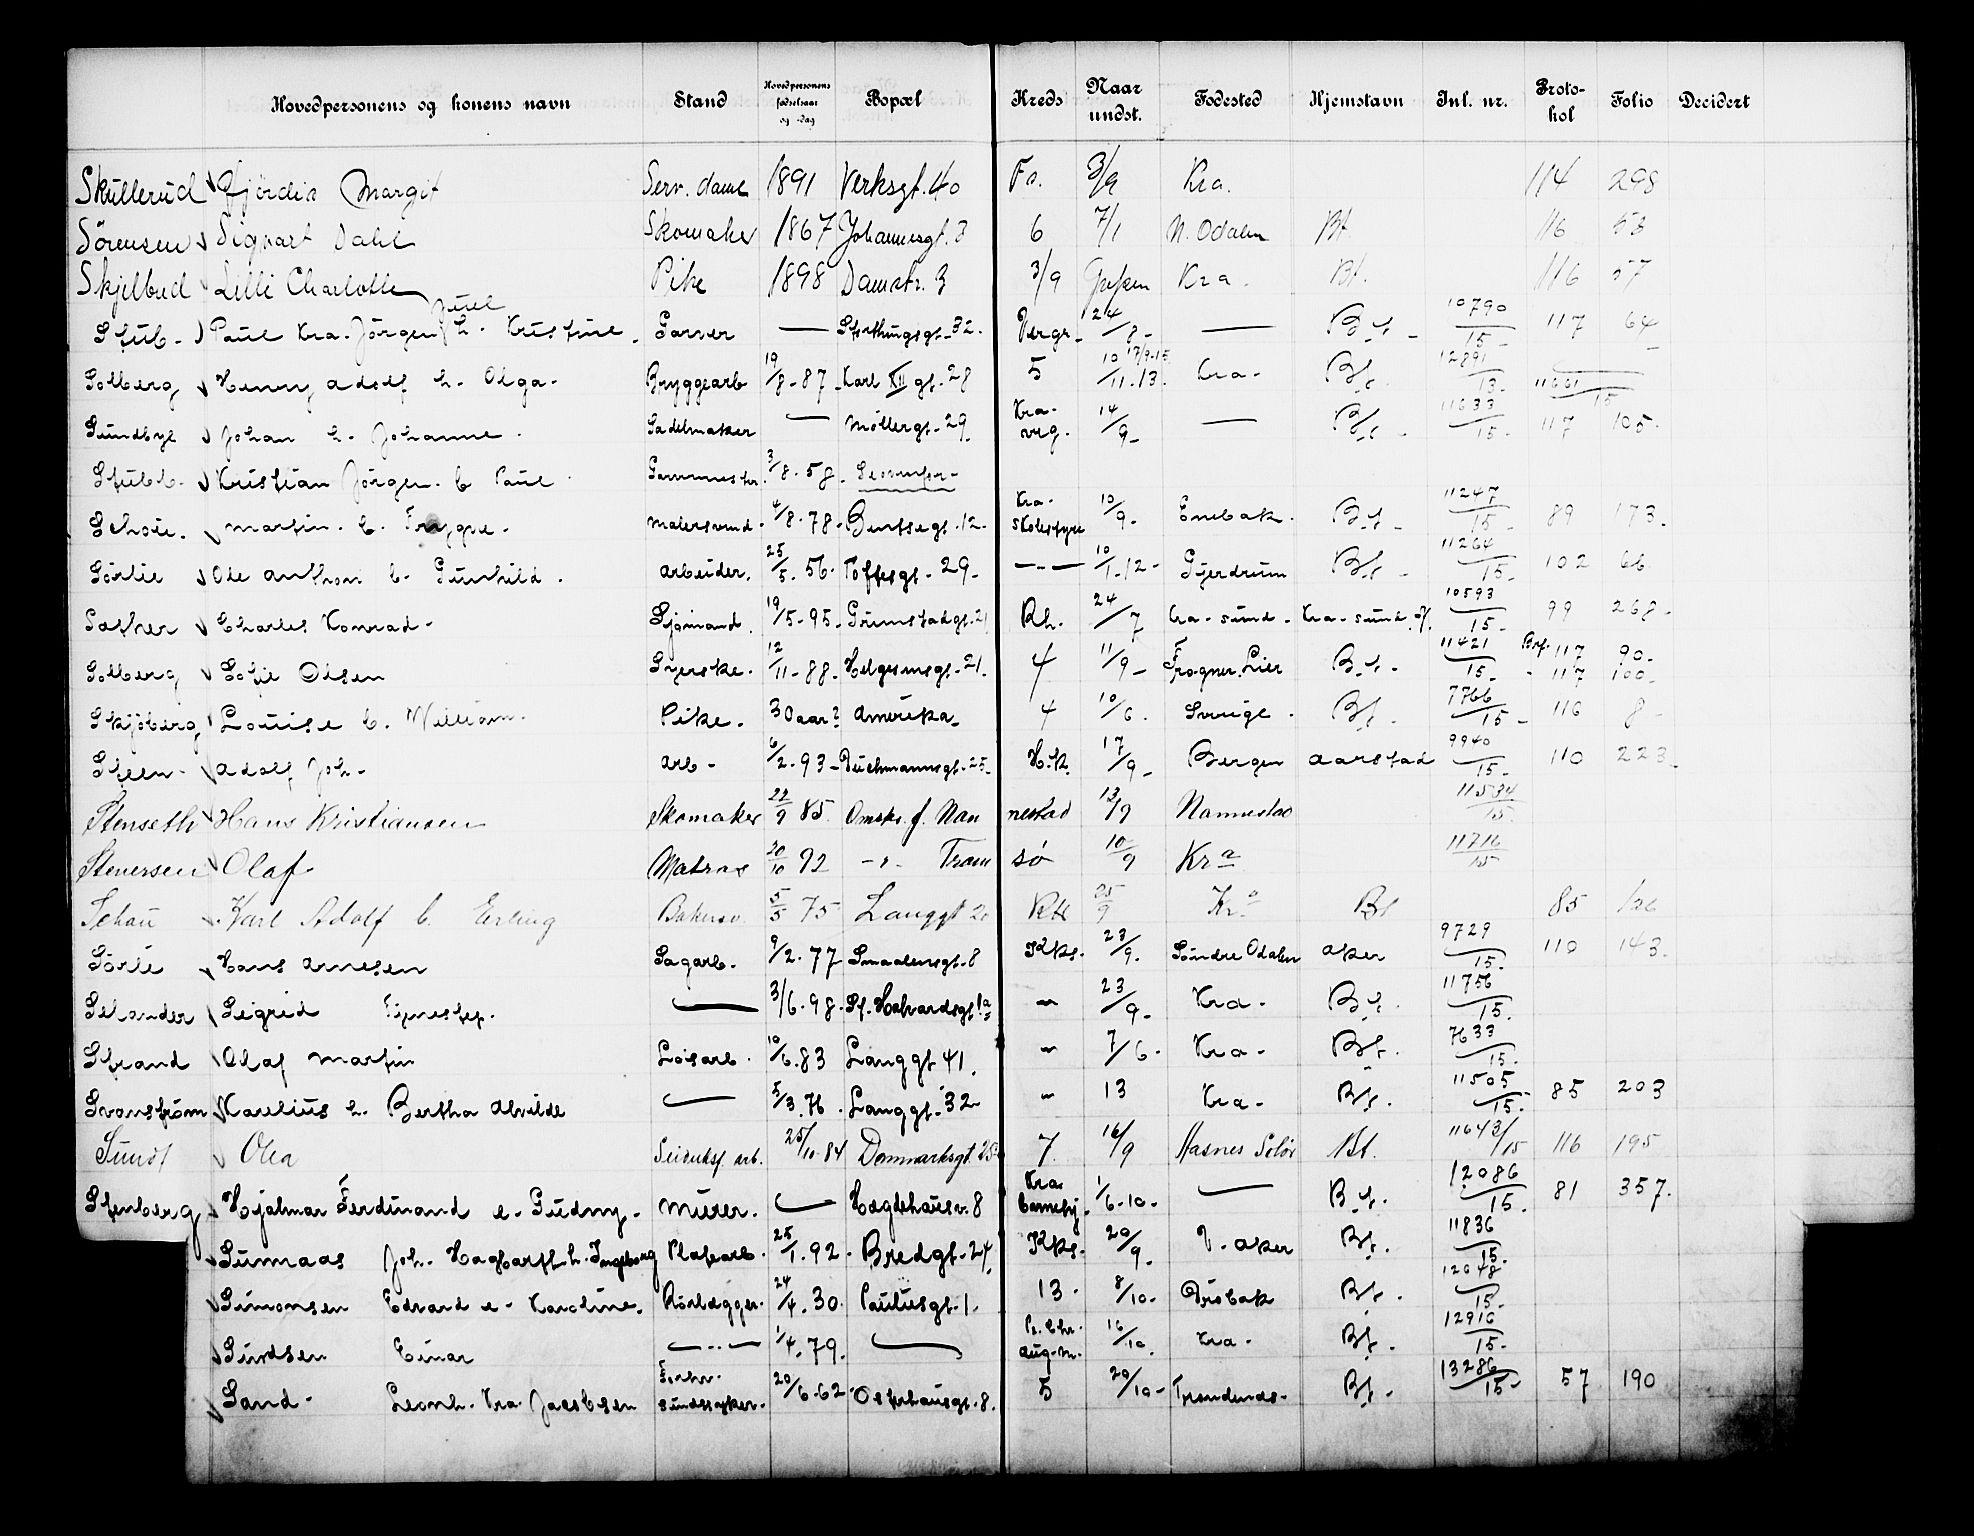 Hovedpersonens og konens navn Stand Hovedpersonens fødselsaar og -dag Bopæl Kreds Naar undst. Fødested Hjemstavn Inl. nr. Protokol Folio Decidert
Skullerud Hjördis Margit Serv. dame 1891 Verksgt. 40 Fo. 3/9 Kra. 114 298
Sörensen Sigvart Dahl Skomaker 1867 Johannesgt. 3 6 7/1 N. Odalen Bt. 116 53
Skjelbred Lilli Charlotte Pike 1898 Damstr. 3 3/9 Kra. Bt. 116 57
Stub. Paul Kra. Jörgen Juel h. Kristine. Garver — Storthingsgt. 32. Vergr. 24/8 — B.t. 10790/15 117 64
Solberg Henry Adolf h. Olga. Bryggearb 19/8. 87. Karl XII gt. 28 5 10/11. 13. 17/9-15 Kra. Bt. 12891/13. 11661/15
Sundbye Johan h. Johanne. Sadelmaker — Møllergt. 29. Kra. verg. 14/9 — Bt. 11633/15. 117 105.
Stubb. Kristian Jörgen. b Paul. 3/8. 58.
Schou. Martin. b. Trygve. Malersvend. 4/8. 78. Gentsegt. 12. Kra. skolestyre 10/9. Enebak. B.t. 11247/15 89 173.
Sörlie Ole Anthon b. Gunhild. Arbeider. 25/5. 56. Toftesgt. 29. —"— 10/1. 12. Gjerdrum Bt. 11264/15. 102 66
Sæther Charles Konrad. Sjömand. 19/5. 95. Grimstadgt. 21 Rh. 24/7 Kra. sund. Kra. sund. 10593/15. 99 268.
Solberg Sofie Olsen Syerske. 12/11. 88. Helgesensgt. 21. 4 11/9 Frogner. Lier B.t. 11421/15. 117 90. 117 100.
Skjöberg Louise b. William. Pike. 30 aar? Amerika. 4 10/6. Sverige. Bt. 7766/15 116 8
Steen. Adolf Joh. Arb. 6/2. 93. Deichmannsgt. 25. H.K. 17/9 Bergen Aarstad 9940/15. 110 223.
Stenseth Hans Kristiansen Skomaker 22/9 85. Omsks. f. Nannestad 13/9 Nannestad 11534/15.
Stenersen Olaf Matros 20/10 92 —"— Tromsø 10/9 Kra 11716/15
Schau Karl Adolf b. Erling Bakersv. 5/5 75 Langgt 20 RH 25/9 Kra Bt 85 126
Sörlie Hans Arnesen Sagarb. 9/2. 77 Smaalensgt. 8 Kks. 23/9. Söndre Odalen Aker 9729/15. 110 143.
Selander Sigrid — 3/6. 98. St. Halvardsgt 1a " 23/9. Kra. B.t. 11756/15.
Strand Olaf Martin Løsarb. 10/6. 83 Langgt 41. " 7/6. Kra. Bt. 7633/15.
Svanström Karelius h. Bertha Alvilde — 5/3. 76. Langgt. 32 " 13 Kra. Bt. 11505/15. 85 203
Sund Ola arb. 25/10. 84 Danmarksgt. 25 7. 16/9 Hasnes Solör Bt. 11643/15 116 195
Stenberg Hjalmar Ferdinand e. Gudny. Murer. — Hegdehausv. 8 Kra barnehj. 1/6. 10. — B.t. 12086/15. 81 357.
Sumaas Joh. Hagbarth h. Ingeborg Platearb. 25/1. 92. Bredgt. 24. Kks. 20/9. V. Aker Bt. 11836/15.
Simonsen Edvard e. Karoline. Rörlægger. 24/4. 30. Paulusgt. 1. 13. 8/10. Dröbak Bt. 12048/15.
Sundsen Einar —"— 1/4. 79. — Pr. Chr. Aug. M. 16/10. Kra. Bt. 12916/15.
Sand. Leonh. Kra. Jacobsen 20/6. 62. Osterhausgt. 8. 5 20/10. Trondenes. Bt. 13286/15. 57 190